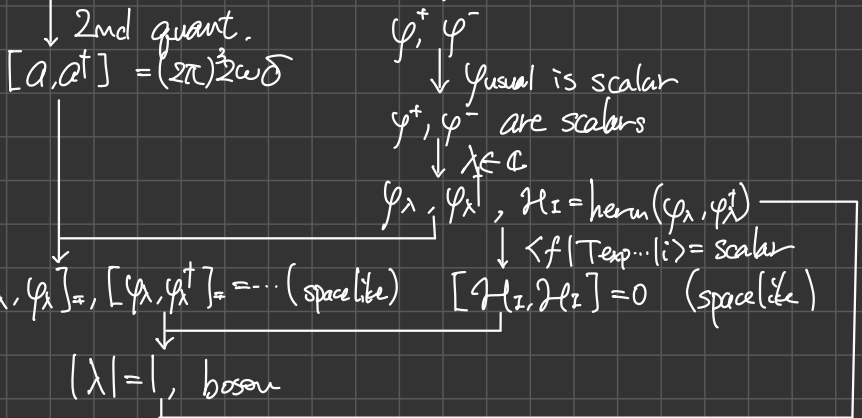 ↓ 2nd quant.
[a,a†] = (2π)³2ωδ
φ⁺, φ⁻
↓ φusual is scalar
φ⁺, φ⁻ are scalars
↓ λ∈ℂ
φλ, φλ†, ℋI = herm(φλ, φλ†)
↓ <f|Texp...|i> = scalar
, φλ]∓, [φλ, φλ†]∓ = ... (spacelike)
[ℋI, ℋI] = 0 (spacelike)
|λ| = 1, boson